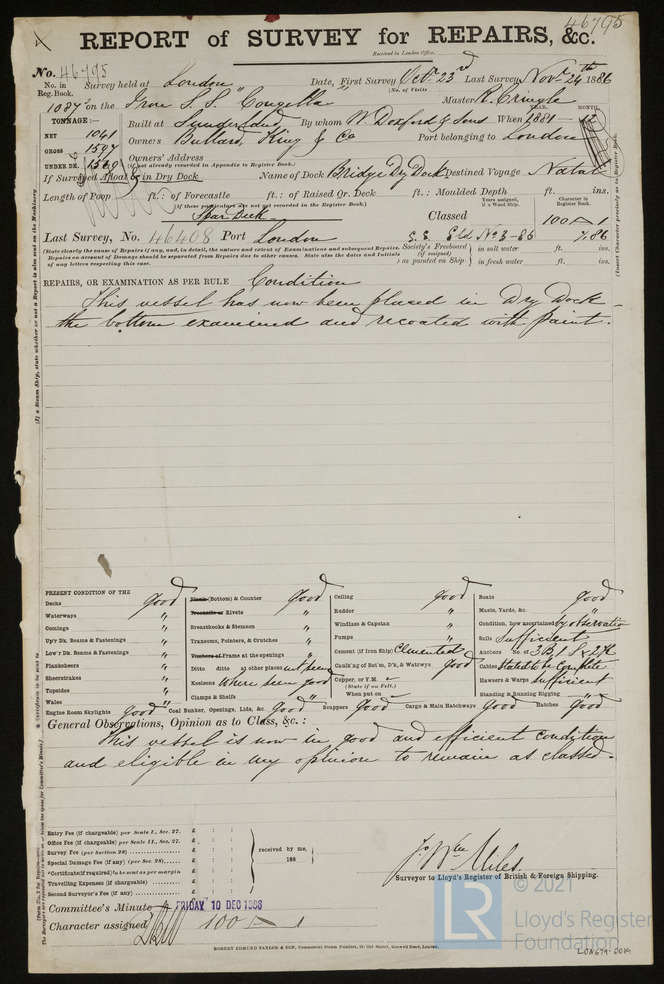 46795
REPORT of SURVEY for REPAIRS, &c.
Received in London Office,
No. 46795
No. in Reg. Book. Survey held at London Date, First Survey Octr 23rd Last Survey Novr 24th 1886
(No. of Visits
on the Iron S.S. "Congella" Master R. Cringle
TONNAGE:— YEAR. MONTH.
NET 1041 Built at Sunderland By whom W. Doxford & Sons When 1881
GROSS 1597 Owners Bullard, King & Co Port belonging to London
UNDER DK. Owners' Address
(if not already recorded in Appendix to Register Book.)
If Surveyed Afloat or in Dry Dock Name of Dock Bridge Dry Dock Destined Voyage Natal
Length of Poop ft.: of Forecastle ft.: of Raised Qr. Deck ft.: Moulded Depth ft. ins.
(if these particulars are not yet recorded in the Register Book.)
Years assigned, if a Wood Ship. Character in Register Book.
Spar Deck Classed 100 A 1
Last Survey, No. 46408 Port London S.S. Eld No 3-86 7,86
(State clearly the cause of Repairs if any, and, in detail, the nature and extent of Examinations and subsequent Repairs. Society's Freeboard in salt water ft. ins.
Repairs on account of Damage should be separated from Repairs due to other causes. State also the dates and initials (if assigned)
of any letters respecting this case. as painted on Ship in fresh water ft. ins.
REPAIRS, OR EXAMINATION AS PER RULE Condition
This vessel has now been placed in Dry Dock –
the bottom examined and recoated with paint.
(If a Steam Ship, state whether or not a Report is also sent on the Machinery
(Insert Character precisely as in Register Book.
PRESENT CONDITION OF THE
Decks good
Waterways "
Comings "
Up'r Dk. Beams & Fastenings "
Low'r Dk. Beams & Fastenings "
Planksheers "
Sheerstrakes "
Topsides "
Wales "
Engine Room Skylights good
Plank (Bottom) & Counter good
Treenails or Rivets "
Breasthooks & Stemson "
Transoms, Pointers, & Crutches "
Timbers or Frames at the openings "
Ditto ditto at other places not seen
Keelsons where seen good
Clamps & Shelfs "
Coal Bunker, Openings, Lids, &c. good
Ceiling good
Rudder "
Windlass & Capstan "
Pumps "
Cement (if Iron Ship) Cemented
Caulk'ng of Bot'm, D'k, & Watrwys good
Copper, or Y.M.
(State if on Felt.)
When put on
Scuppers good Cargo & Main Hatchways good
Boats good
Masts, Yards, &c. "
Condition, how ascertained by observation
Sails Sufficient
Anchors No. of 3 B, 1 S & 2 K
Cables stated to be complete
Hawsers & Warps sufficient
Standing & Running Rigging "
Hatches good
General Observations, Opinion as to Class, &c.:
This vessel is now in good and efficient condition
and eligible in my opinion to remain as classed.
Entry Fee (if chargeable) per Scale I., Sec. 27. £ : :
Office Fee (if chargeable) per Scale II., Sec. 27. £ : :
Survey Fee (per Section 28) £ : :
Special Damage Fee (if any) (per Sec. 28) £ : :
*Certificate (if required) to be sent as per margin
Travelling Expenses (if chargeable) £ : :
Second Surveyor's Fee (if any) £ : :
received by me,
188
Jo. Wm Miles
Surveyor to Lloyd's Register of British & Foreign Shipping.
Committee's Minute FRIDAY 10 DEC 1886
Character assigned 100 A 1
ROBERT EDMUND TAYLOR & SON, Commercial Steam Printers, 19, Old Street, Goswell Road, London.
LR
© 2021
Lloyd's Register
Foundation
LON679-0019